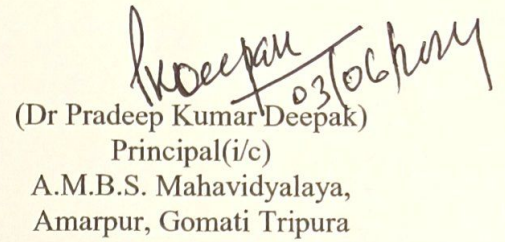 PKDeepak
03/06/2024
(Dr Pradeep Kumar Deepak)
Principal(i/c)
A.M.B.S. Mahavidyalaya,
Amarpur, Gomati Tripura